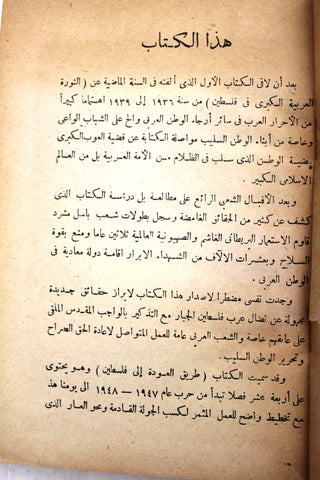 هذا الكتاب
بعد أن لاقى الكتاب الأول الذى ألفته فى السنة الماضية عن (الثورة
العربية الكبرى فى فلسطين) من سنة ١٩٣٦ إلى ١٩٣٩ اهتماما كبيراً
من الأحرار العرب فى سائر أرجاء الوطن العربي والح على الشباب الواعى
وخاصة من أبناء الوطن السليب مواصلة الكتابة عن قضية العرب الكبرى
قضية الوطن الذى سلب فى الظلام من الأمة العربية بل من العالم
الاسلامى الكبير.
وبعد الاقبال الشعبى الرائع على مطالعة بل دراسة الكتاب الذى
كشف عن كثير من الحقائق الغامضة وسجل بطولات شعب باسل مشرد
قاوم الاستعمار البريطانى الغاشم والصهيونية العالمية ثلاثين عاما ومنع بقوة
السلاح وبعشرات الآلاف من الشهداء الابرار اقامة دولة معادية فى
الوطن العربى.
وجدت نفسى مضطرا لاصدار هذا الكتاب لابراز حقائق جديدة
مجهولة عن نضال عرب فلسطين الجبار مع التذكير بالواجب المقدس الملقى
على عاتقهم خاصة والشعب العربى عامة للعمل المتواصل لاعادة الحق الصراح
وتحرير الوطن السليب.
وقد سميت الكتاب (طريق العودة إلى فلسطين) وهو يحتوى
على أربعة عشر فصلا تبدأ من حرب عام ١٩٤٧ — ١٩٤٨ الى يومنا هذا
مع تخطيط واضح للعمل المثمر لكسب الجولة القادمة ومحو العار الذى